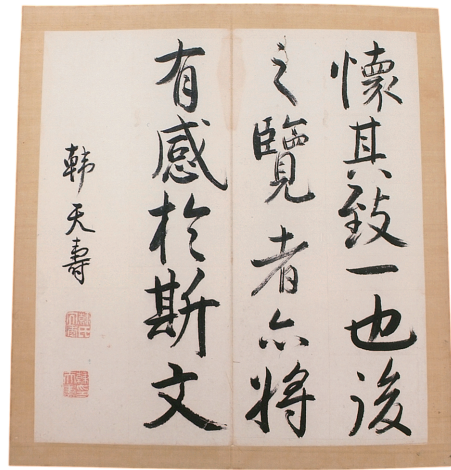 懷其致一也後
之覽者亦將
有感於斯文
韩天壽